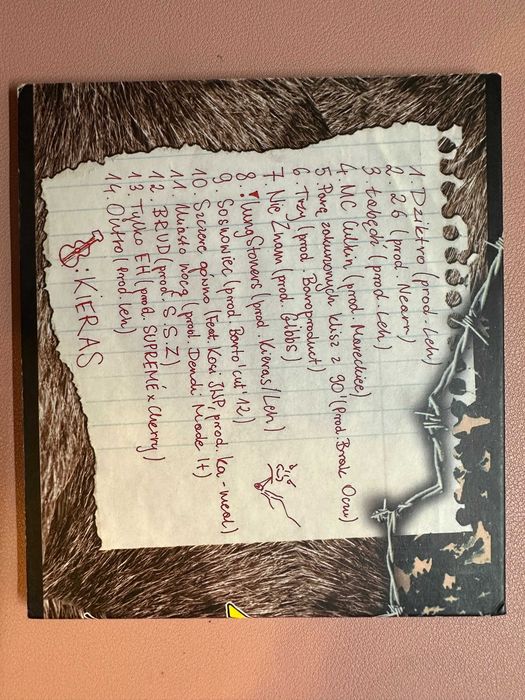 1. Dziktro (prod. Leh)
2. 26 (prod. Nearr)
3 Łabędź (prod. Leh)
4. MC Cullin (prod. Mareckiee)
5. Parę zakurzonych klisz z 90' (Prod. Brak Ocru)
6 Trzy (prod. Boroproduct)
7 Nie Znam (prod. Gibbs)
8. Yung Stoners (prod. Kieras/Leh)
9. Sosnowiec (prod Barto'cut 12)
10. Szczere gówno (feat. Kosi JWP, prod. Ka-meal)
11 Miasto nocą (prod. Dendi Made It)
12 BRUD (prod. S.S.Z)
13 Tylko EH (prod. SUPREMÉ x Cherry)
14. Outro (prod. Leh)
: KIERAS